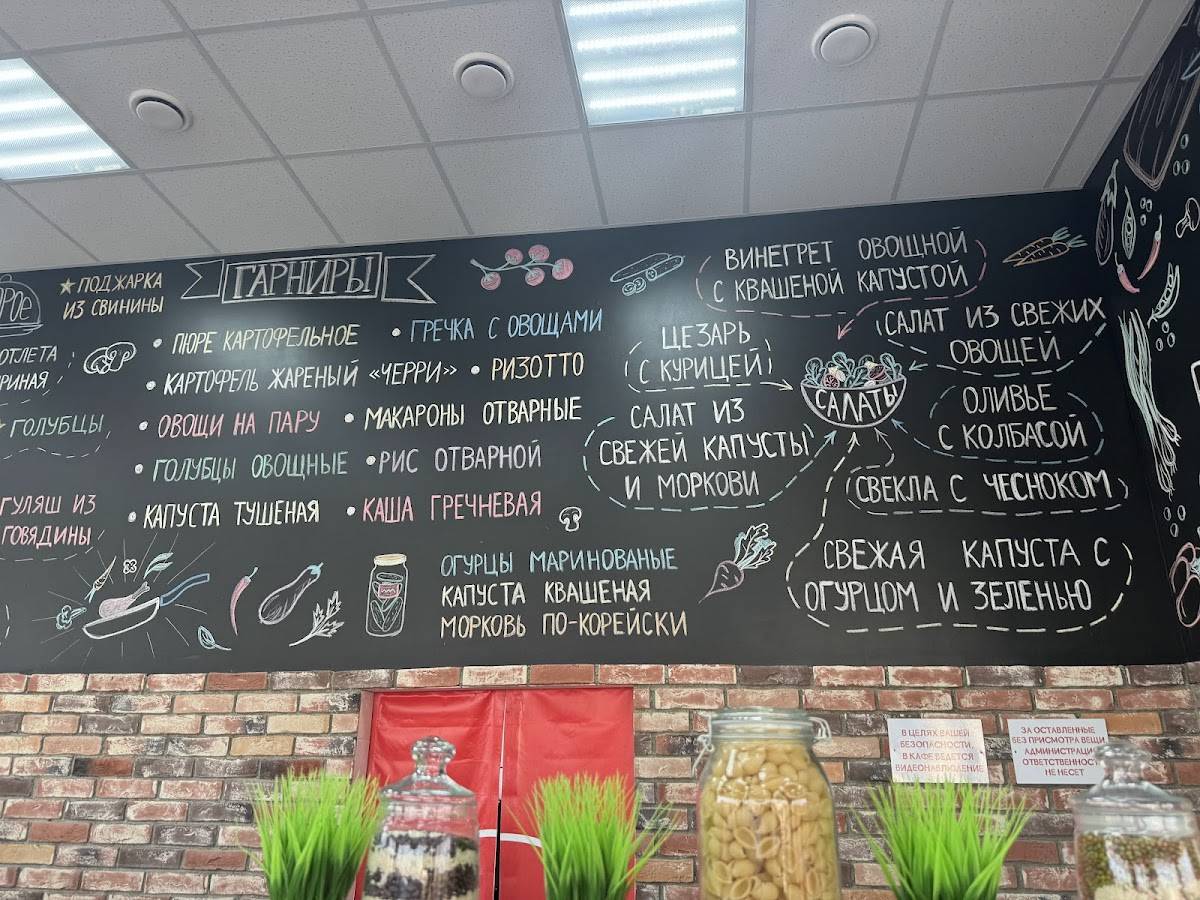 ПОДЖАРКА
ИЗ СВИНИНЫ
ГОЛУБЦЫ
ГУЛЯШ ИЗ
ГОВЯДИНЫ
ГАРНИРЫ
• ПЮРЕ КАРТОФЕЛЬНОЕ
• ГРЕЧКА С ОВОЩАМИ
• КАРТОФЕЛЬ ЖАРЕНЫЙ «ЧЕРРИ»
• РИЗОТТО
• ОВОЩИ НА ПАРУ
• МАКАРОНЫ ОТВАРНЫЕ
• ГОЛУБЦЫ ОВОЩНЫЕ
• РИС ОТВАРНОЙ
• КАПУСТА ТУШЕНАЯ
• КАША ГРЕЧНЕВАЯ
ОГУРЦЫ МАРИНОВАНЫЕ
КАПУСТА КВАШЕНАЯ
МОРКОВЬ ПО-КОРЕЙСКИ
ВИНЕГРЕТ ОВОЩНОЙ
С КВАШЕНОЙ КАПУСТОЙ
ЦЕЗАРЬ
С КУРИЦЕЙ
САЛАТ ИЗ СВЕЖИХ
ОВОЩЕЙ
САЛАТЫ
САЛАТ ИЗ
СВЕЖЕЙ КАПУСТЫ
И МОРКОВИ
ОЛИВЬЕ
С КОЛБАСОЙ
СВЕКЛА С ЧЕСНОКОМ
СВЕЖАЯ КАПУСТА С
ОГУРЦОМ И ЗЕЛЕНЬЮ
В ЦЕЛЯХ ВАШЕЙ
БЕЗОПАСНОСТИ
В КАФЕ ВЕДЕТСЯ
ВИДЕОНАБЛЮДЕНИЕ
ЗА ОСТАВЛЕННЫЕ
БЕЗ ПРИСМОТРА ВЕЩИ
АДМИНИСТРАЦИ
ОТВЕТСТВЕННОСТ
НЕ НЕСЕТ